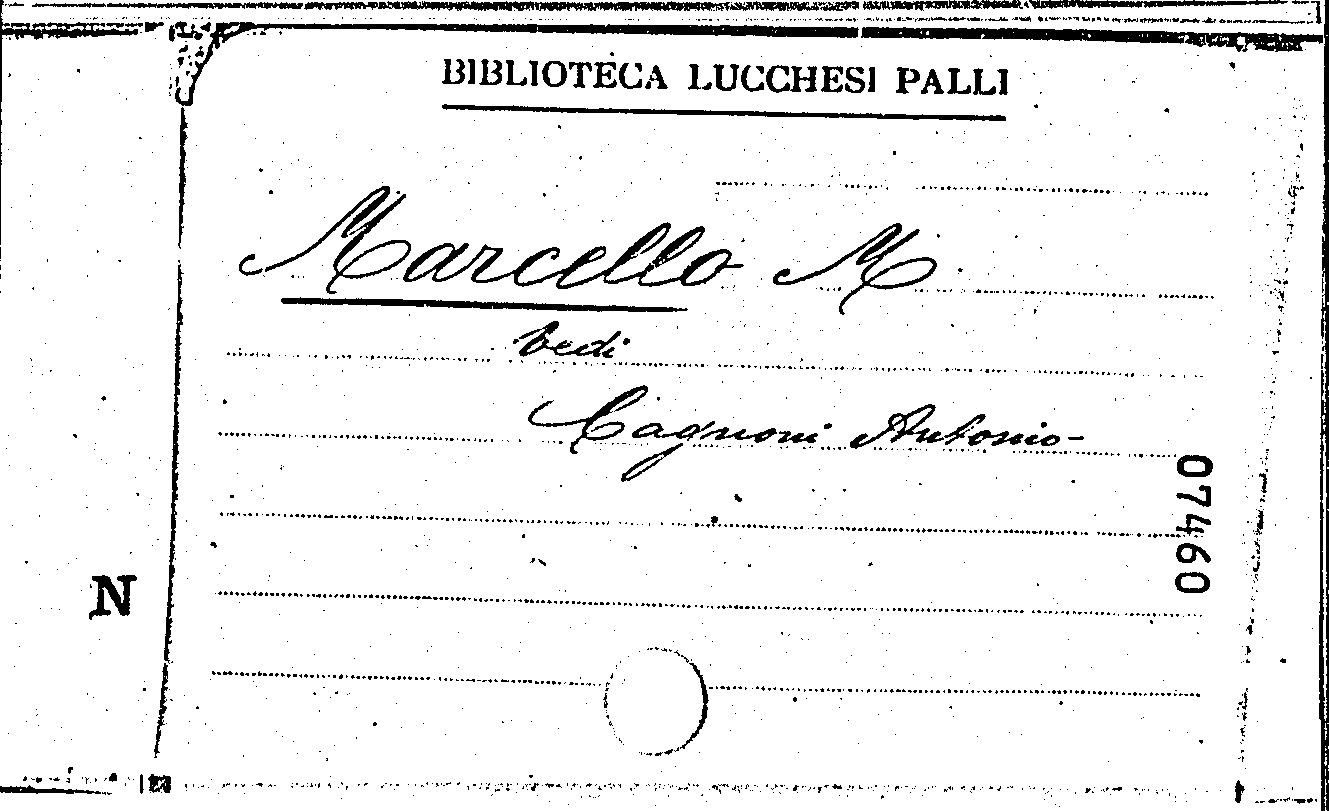 BIBLIOTECA LUCCHESI PALLI
Marcello M.
Vedi
Cagnoni Antonio-
07460
N